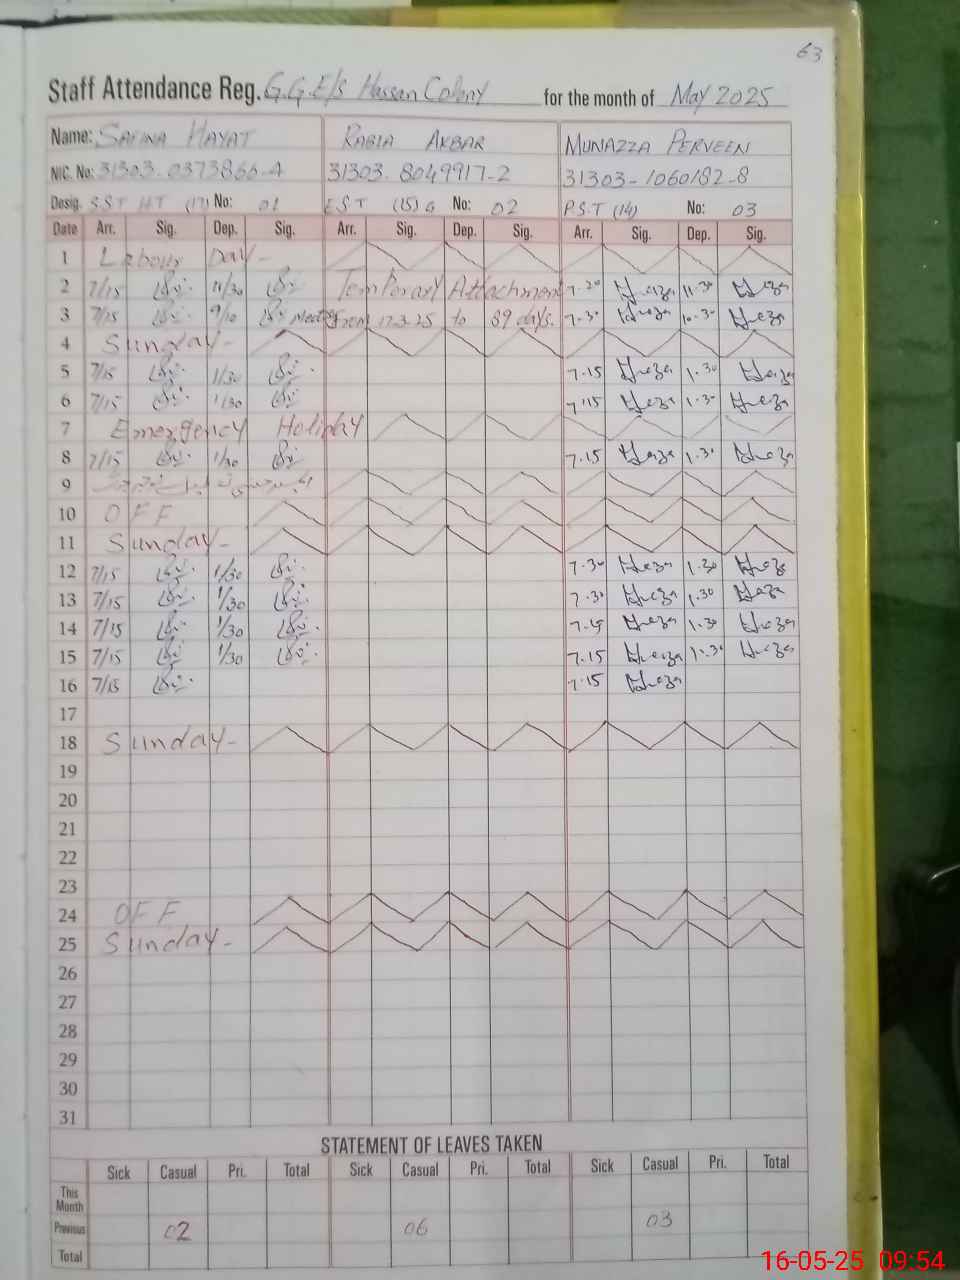 63
Staff Attendance Reg. G.G.E/S Hassan Colony for the month of May 2025
Name: SAFINA HAYAT RABIA AKBAR MUNAZZA PERVEEN
NIC. No: 31303-0373866-4 31303-8049917-2 31303-1060182-8
Desig. S.ST HT (17) No: 01 E.S.T (15) G No: 02 P.S.T (14) No: 03
Date Arr. Sig. Dep. Sig. Arr. Sig. Dep. Sig. Arr. Sig. Dep. Sig.
1 Labour Day-
2 7/15 11/30 Temporary Attachment 7.20 11.30
3 7/15 9/10 from 17.3.25 to 89 days. 7.30 10.30
4 Sunday-
5 7/15 1/30 7.15 1.30
6 7/15 1/30 7.15 1.30
7 Emergency Holiday
8 7/15 1/30 7.15 1.30
9
10 OFF
11 Sunday-
12 7/15 1/30 7.30 1.30
13 7/15 1/30 7.30 1.30
14 7/15 1/30 7.15 1.30
15 7/15 1/30 7.15 1.30
16 7/15 7.15
17
18 Sunday-
19
20
21
22
23
24 OFF
25 Sunday-
26
27
28
29
30
31
STATEMENT OF LEAVES TAKEN
Sick Casual Pri. Total Sick Casual Pri. Total Sick Casual Pri. Total
This Month
Previous 02 06 03
Total
16-05-25 09:54